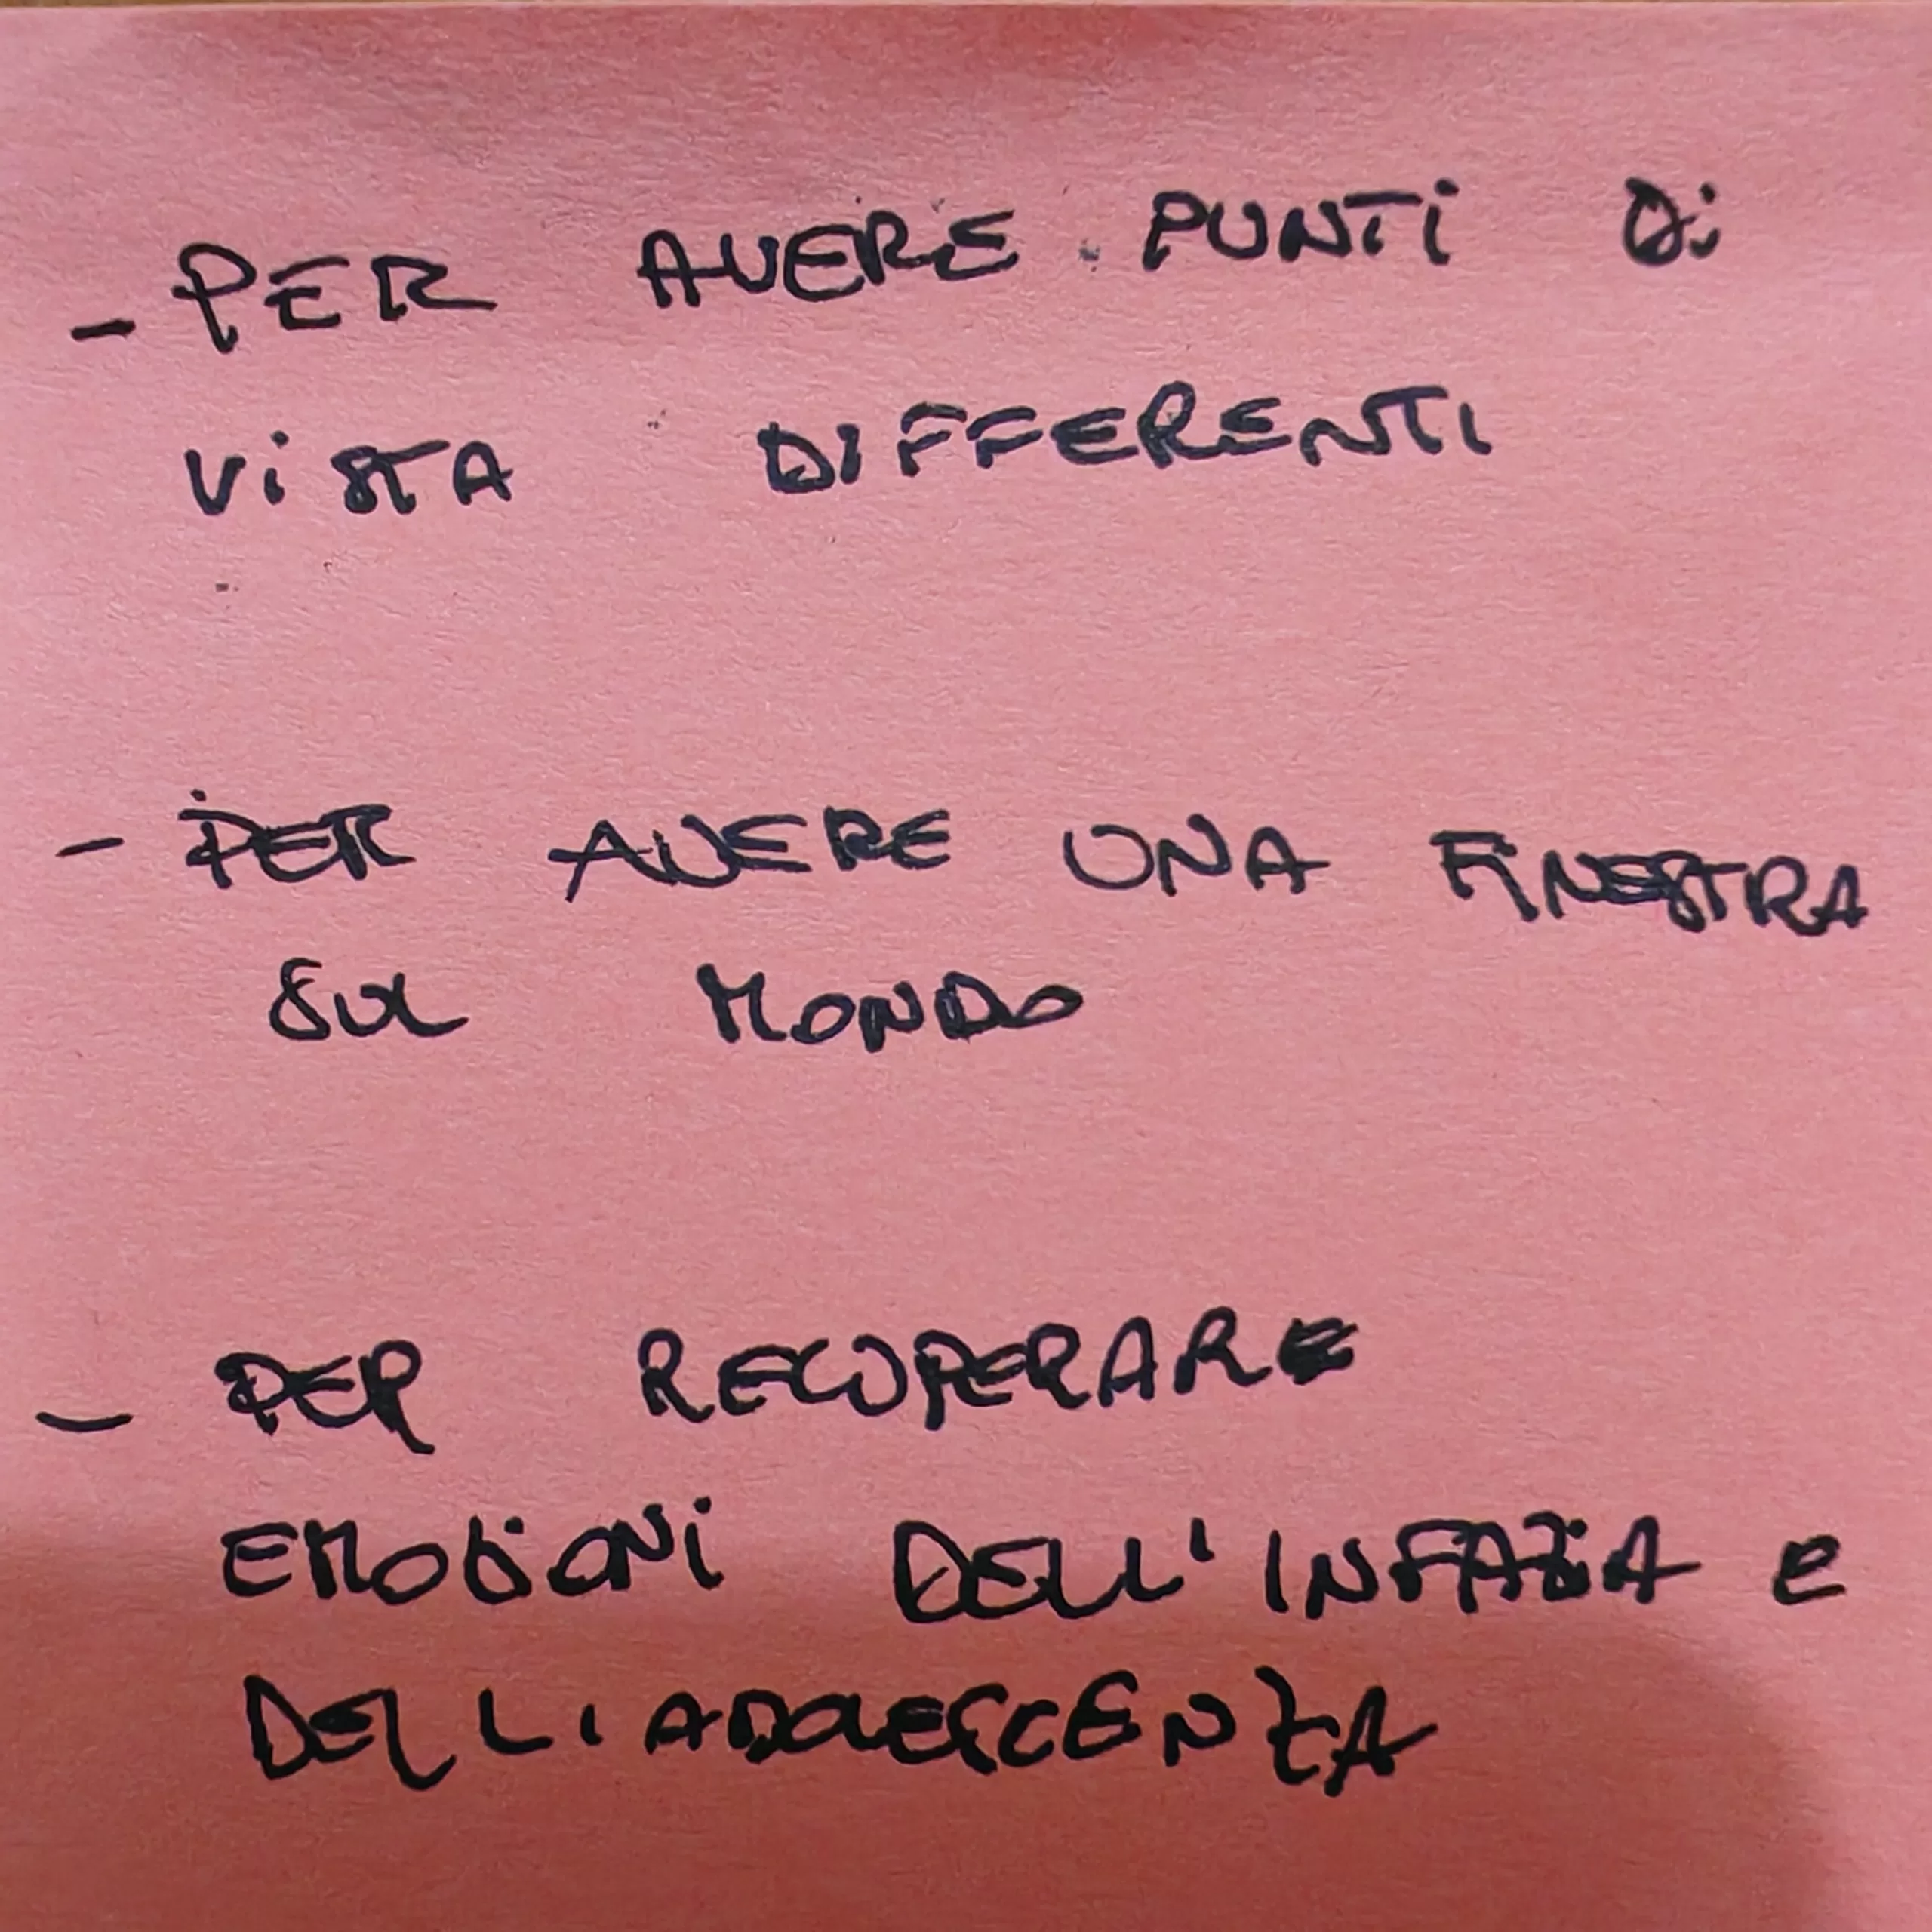 - PER AVERE PUNTI Di
ViSTA DIFFERENTI
- PER AVERE UNA FINESTRA
SUL MONDO
- PER RECUPERARE
EMOZIONI DELL'INFAZIA e
DELL'ADOLESCENZA